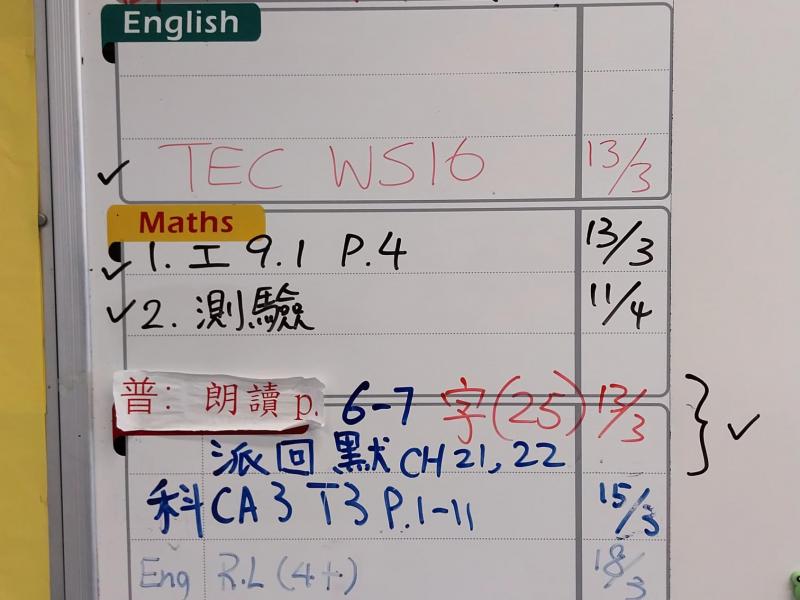 English
TEC WS16 13/3
Maths
1. 工 9.1 P.4 13/3
2. 測驗 11/4
普: 朗讀 p. 6-7 字(25) 13/3
派回默 CH 21, 22
科 CA3 T3 P.1-11 15/3
Eng R.L (4+) 18/3